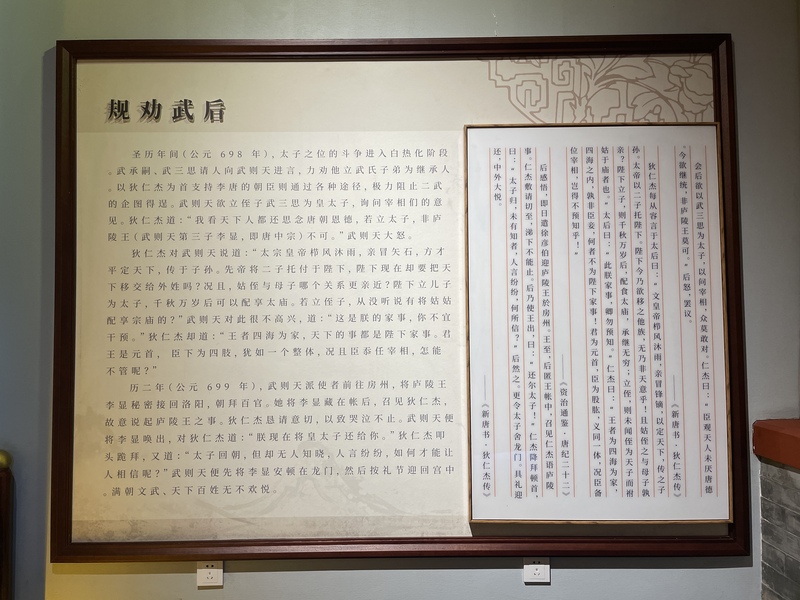 规劝武后
圣历年间(公元 698 年),太子之位的斗争进入白热化阶段
。武承嗣、武三思请人向武则天进言,力劝他立武氏子弟为继承人
。以狄仁杰为首支持李唐的朝臣则通过各种途径,极力阻止二武
的企图得逞。武则天欲立侄子武三思为皇太子,询问宰相们的意
见。狄仁杰道:“我看天下人都还思念唐朝恩德,若立太子,非庐
陵王(武则天第三子李显,即唐中宗)不可。”武则天大怒。
狄仁杰对武则天说道:“太宗皇帝栉风沐雨,亲冒矢石,方才
平定天下,传于子孙。先帝将二子托付于陛下,陛下现在却要把天
下移交给外姓吗?况且,姑侄与母子哪个关系更亲近?陛下立儿子
为太子,千秋万岁后可以配享太庙。若立侄子,从没听说有将姑姑
配享宗庙的?”武则天对此很不高兴,道:“这是朕的家事,你不宜
干预。”狄仁杰却道:“王者四海为家,天下的事都是陛下家事。君
王是元首, 臣下为四肢,犹如一个整体,况且臣忝任宰相,怎能
不管呢?”
历二年(公元 699 年),武则天派使者前往房州,将庐陵王
李显秘密接回洛阳,朝拜百官。她将李显藏在帐后,召见狄仁杰,
故意说起庐陵王之事。狄仁杰恳请意切,以致哭泣不止。武则天便
将李显唤出,对狄仁杰道:“朕现在将皇太子还给你。”狄仁杰叩
头跪拜,又道:“太子回朝,但却无人知晓,人言纷纷,如何才能让
人相信呢?”武则天便先将李显安顿在龙门,然后按礼节迎回宫中
。满朝文武、天下百姓无不欢悦。
会后欲以武三思为太子,以问宰相,众莫敢对。仁杰曰:“臣观天人未厌唐德
今欲继统,非庐陵王莫可。”后怒,罢议。
——《新唐书·狄仁杰传》
狄仁杰每从容言于太后曰:“文皇帝栉风沐雨,亲冒锋镝,以定天下,传之子
孙。太帝以二子托陛下。陛下今乃欲移之他族,无乃非天意乎!且姑侄之与母子孰
亲?陛下立子,则千秋万岁后,配食太庙,承继无穷;立侄,则未闻侄为天子而祔
姑于庙者也。”太后曰:“此朕家事,卿勿预知。”仁杰曰:“王者为四海为家,
四海之内,孰非臣妾,何者不为陛下家事!君为元首,臣为股肱,义同一体,况臣备
位宰相,岂得不预知乎!”
——《资治通鉴·唐纪二十二》
后感悟,即日遣徐彦伯迎庐陵王於房州。王至,后匿王帐中,召见仁杰语庐陵
事。仁杰敷请切至,涕下不能止。后乃使王出,曰:“还尔太子!”仁杰降拜顿首,
曰:“太子归,未有知者,人言纷纷,何所信?”后然之。更令太子舍龙门,具礼迎
还,中外大悦。
——《新唐书·狄仁杰传》